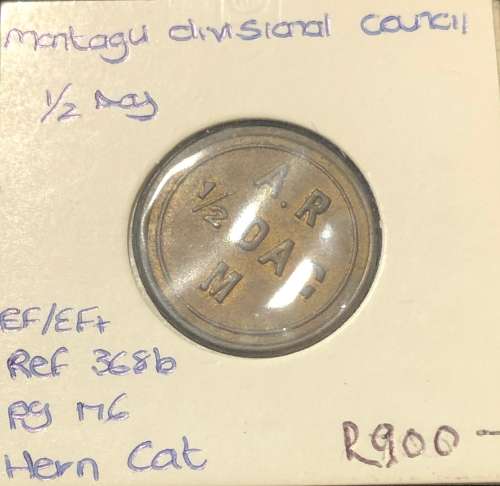 Montagu divisional council
1/2 Day
A.R
1/2 DAG
M
EF/EF+
Ref 368b
pg M6
Hern Cat
R900-